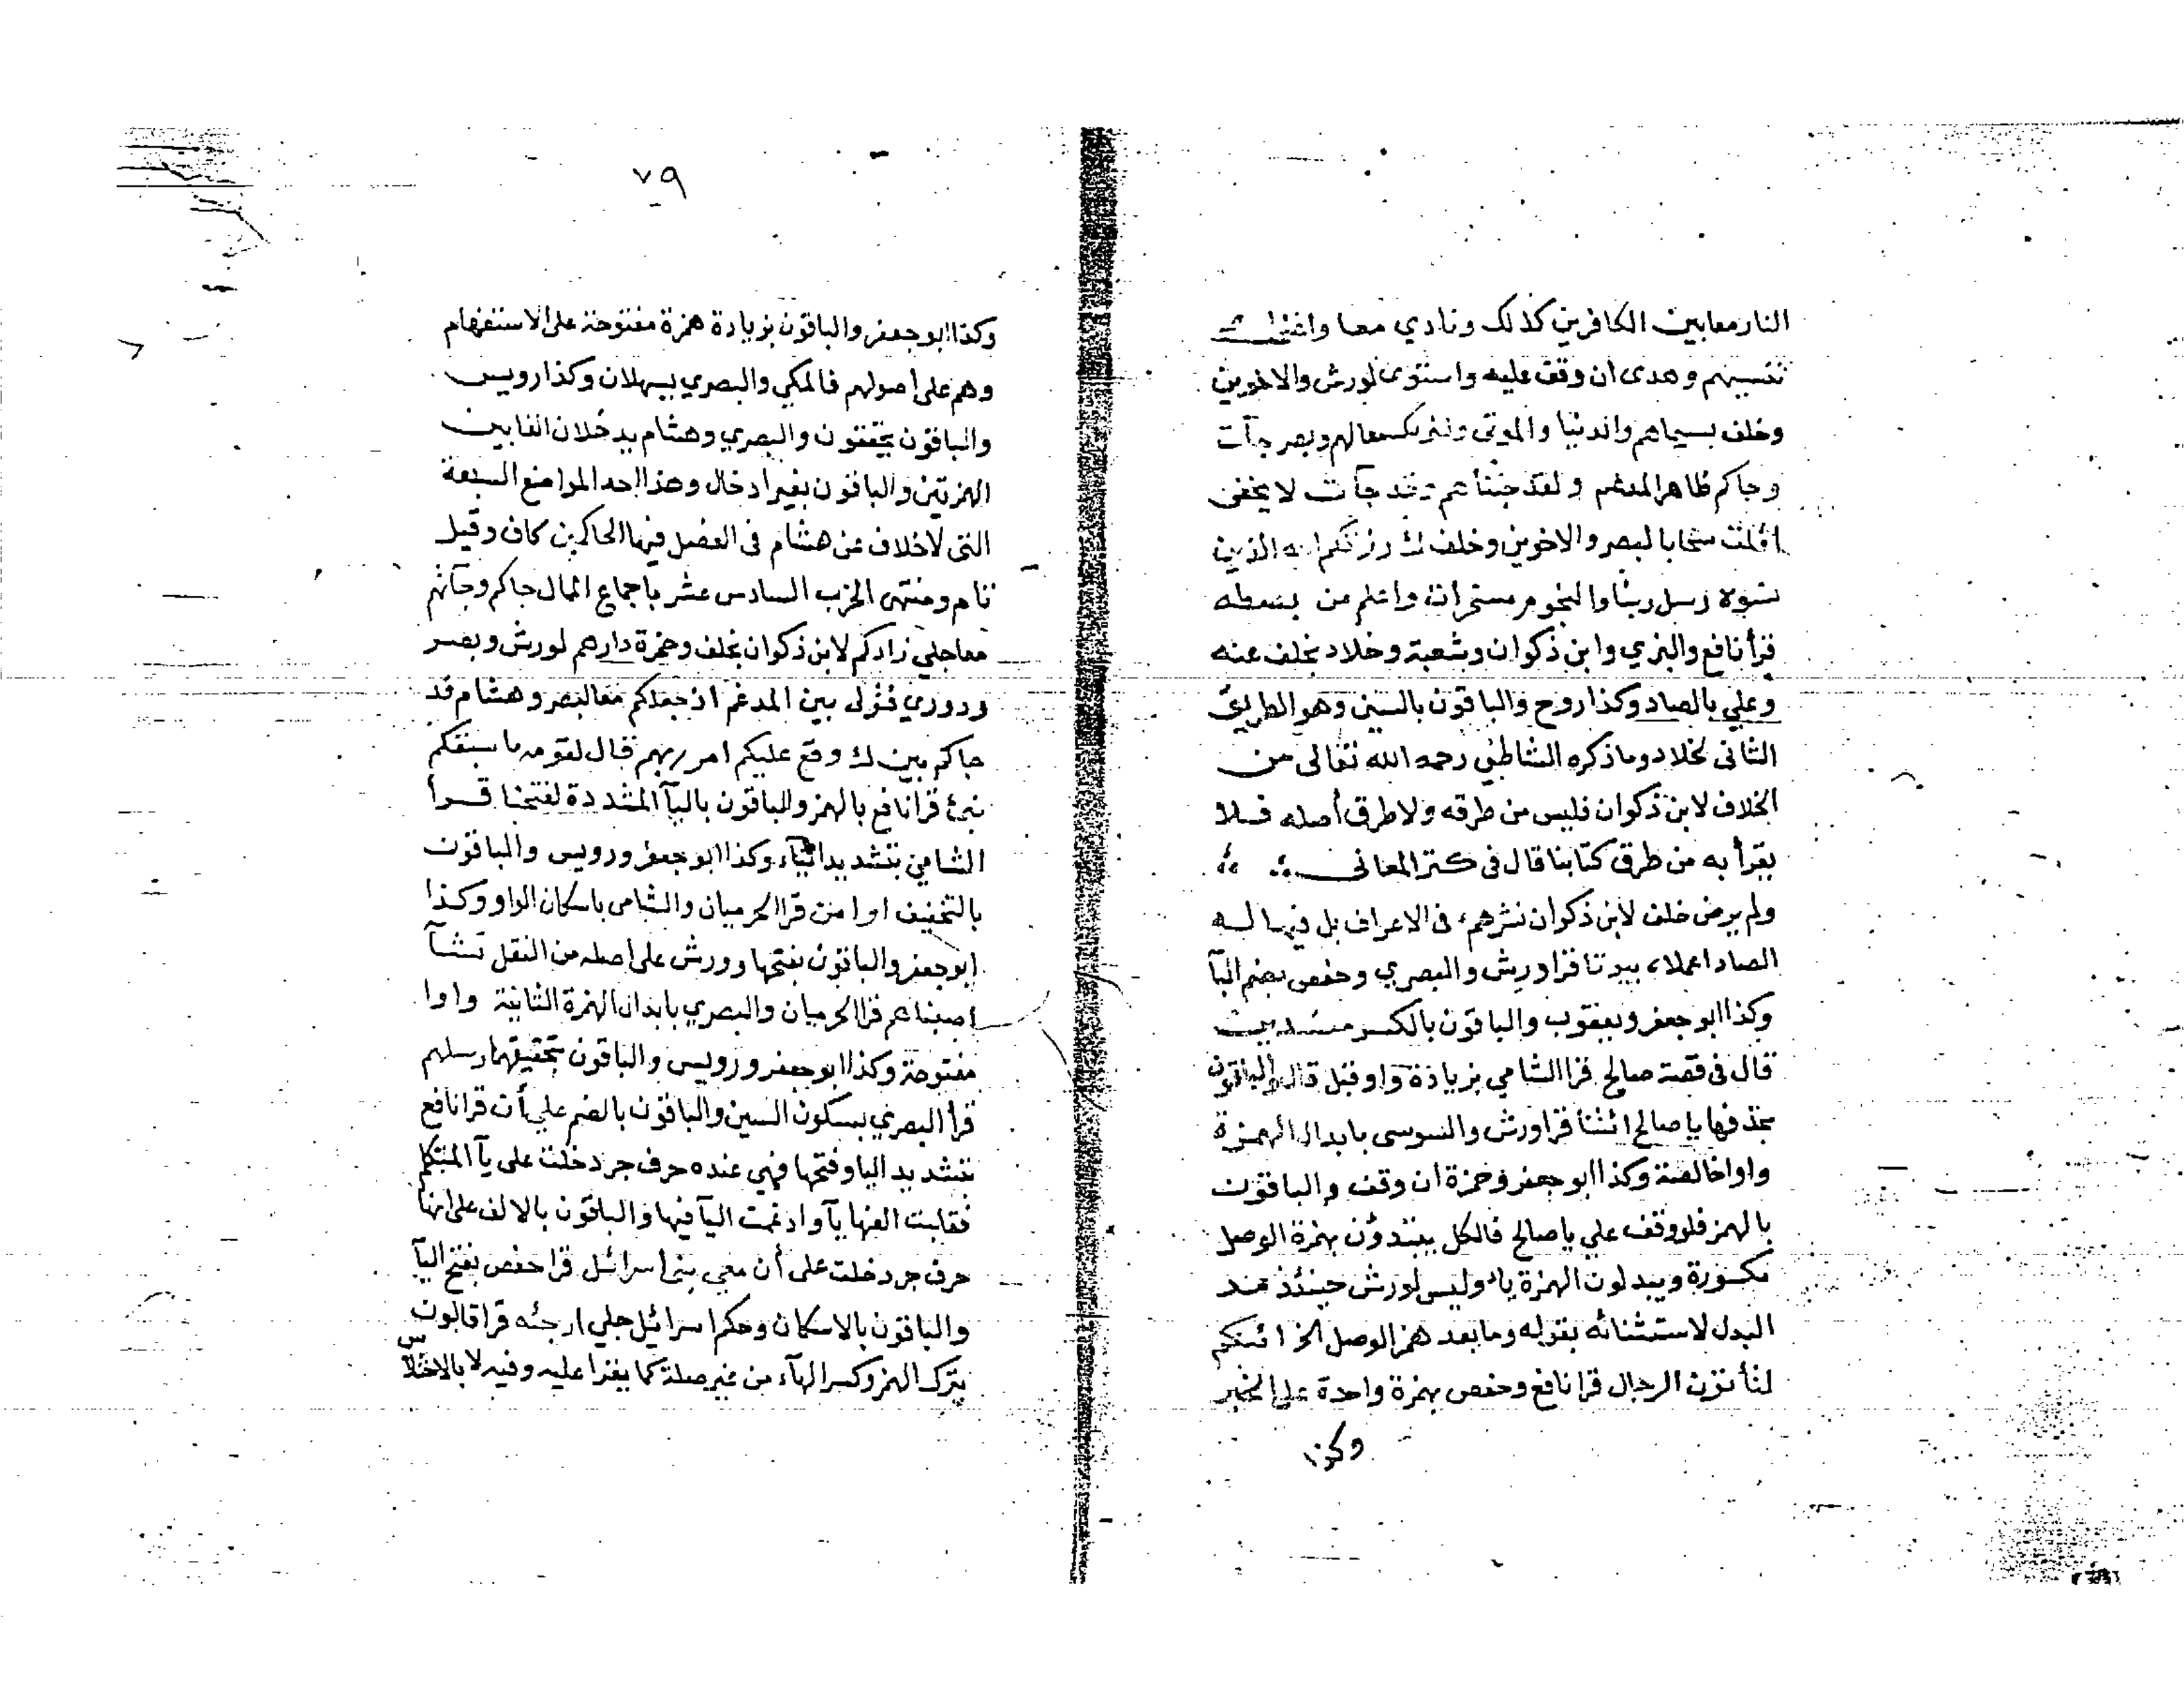 النار معا بين الكافرين كذلك ونادى معا واغنى
ننسيهم وهدى ان وقف عليه واستوى لورش والاخوين
وخلف بسيماهم والدنيا والموتى ولنريك معا لهم وبصر جآت
وجاكم ظاهر المدغم ولقد جئناهم وقد جآت لا يخفى
اقلت سحابا لبصر والاخوين وخلف ك رزقكم الذين
نسوه رسل ربنا والنجوم مسخرات واعلم من بصطه
قرأ نافع والبزي وابن ذكوان وشعبة وخلاد بخلف عنه
وعلي بالصاد وكذا روح والباقون بالسين وهو الطريق
الثانى لخلاد وما ذكره الشاطبي رحمه الله تعالى من
الخلاف لابن ذكوان فليس من طرقه ولا طرق أصله فلا
يقرأ به من طرق كتابنا قال فى كنز المعانى
ولم يرض خلف لابن ذكوان نشرهم فى الاعراف بل فيها له
الصاد اعملاء بيوتا قرا ورش والبصري وحفص بضم البآ
وكذا ابو جعفر ويعقوب والباقون بالكسر مفسدين
قال فى قصة صالح قرا الشامي بزيادة واو قبل قال والباقون
بحذفها يا صالح ائتنا قرا ورش والسوسى بابدال الهمزة
واوا خالصة وكذا ابو جعفر وحمزة ان وقف والباقون
بالهمز فلو وقف علي يا صالح فالكل يبتدؤن بهمزة الوصل
مكسورة ويبدلون الهمزة ياء وليس لورش حينئذ مد
البدل لاستثنائه بقوله وما بعد همز الوصل الخ ائنكم
لتأتون الرجال قرا نافع وحفص بهمزة واحدة على الخبر
وكذا
٧٩
وكذا ابو جعفر والباقون بزيادة همزة مفتوحة على الاستفهام
وهم على اصولهم فالمكي والبصري يسهلان وكذا رويس
والباقون يحققون والبصري وهشام يدخلان الفا بين
الهمزتين والباقون بغير ادخال وهذا احد المواضع السبعة
التى لا خلاف عن هشام فى الفصل فيها الحاكمين كاف وقيل
تام ومنتهى الحزب السادس عشر باجماع الممال جاكم وجآتهم
معا جلي زادكم لابن ذكوان بخلف وحمزة دارهم لورش وبصر
ودوري فتولى بين المدغم اذ جعلكم معا لبصر وهشام قد
جاكم بين ك وقع عليكم امر ربهم قال لقومه ما سبقكم
نبئ قرا نافع بالهمز والباقون باليآ المشددة لفتحنا قرأ
الشامي بتشديد التاء وكذا ابو جعفر ورويس والباقون
بالتخفيف اوا من قرا الحرميان والشامى باسكان الواو وكذا
ابو جعفر والباقون بفتحها وورش على اصله من النقل نشآ
اصبناهم قرا الحرميان والبصري بابدال الهمزة الثانية واوا
مفتوحة وكذا ابو جعفر ورويس والباقون بتحقيقهما رسلهم
قرأ البصري بسكون السين والباقون بالضم علي أن قرا نافع
بتشديد اليا وفتحها فهي عنده حرف جر دخلت على يآ المتكلم
فقلبت الفها يآ وادغمت اليآ فيها والباقون بالالف على انها
حرف جر دخلت على أن معي بنى اسرائيل قرا حفص بفتح اليآ
والباقون بالاسكان وحكم اسرائيل جلي ارجئه قرا قالون
بترك الهمز وكسر الهآء من غير صلة كما يقرا عليه وفيه لا بالاختلاس